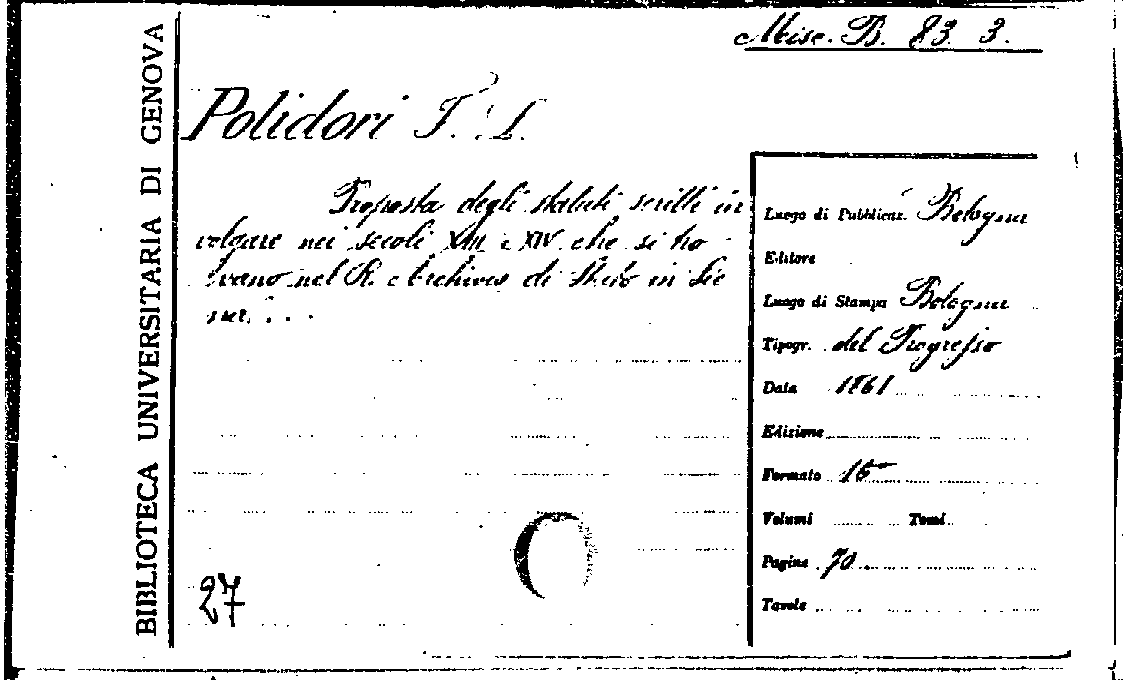 BIBLIOTECA UNIVERSITARIA DI GENOVA
Misc. B. 83. 3.
Polidori F. L.
Proposta degli statuti scritti in
volgare nei secoli XIII e XIV che si tro
vano nel R. Archivio di Stato in Sie
na. . . .
Luogo di Pubblicaz. Bologna
Editore
Luogo di Stampa Bologna
Tipogr. del Progresso
Data 1861
Edizione
Formato 16°
Volumi Tomi
Pagine 70
Tavole
27